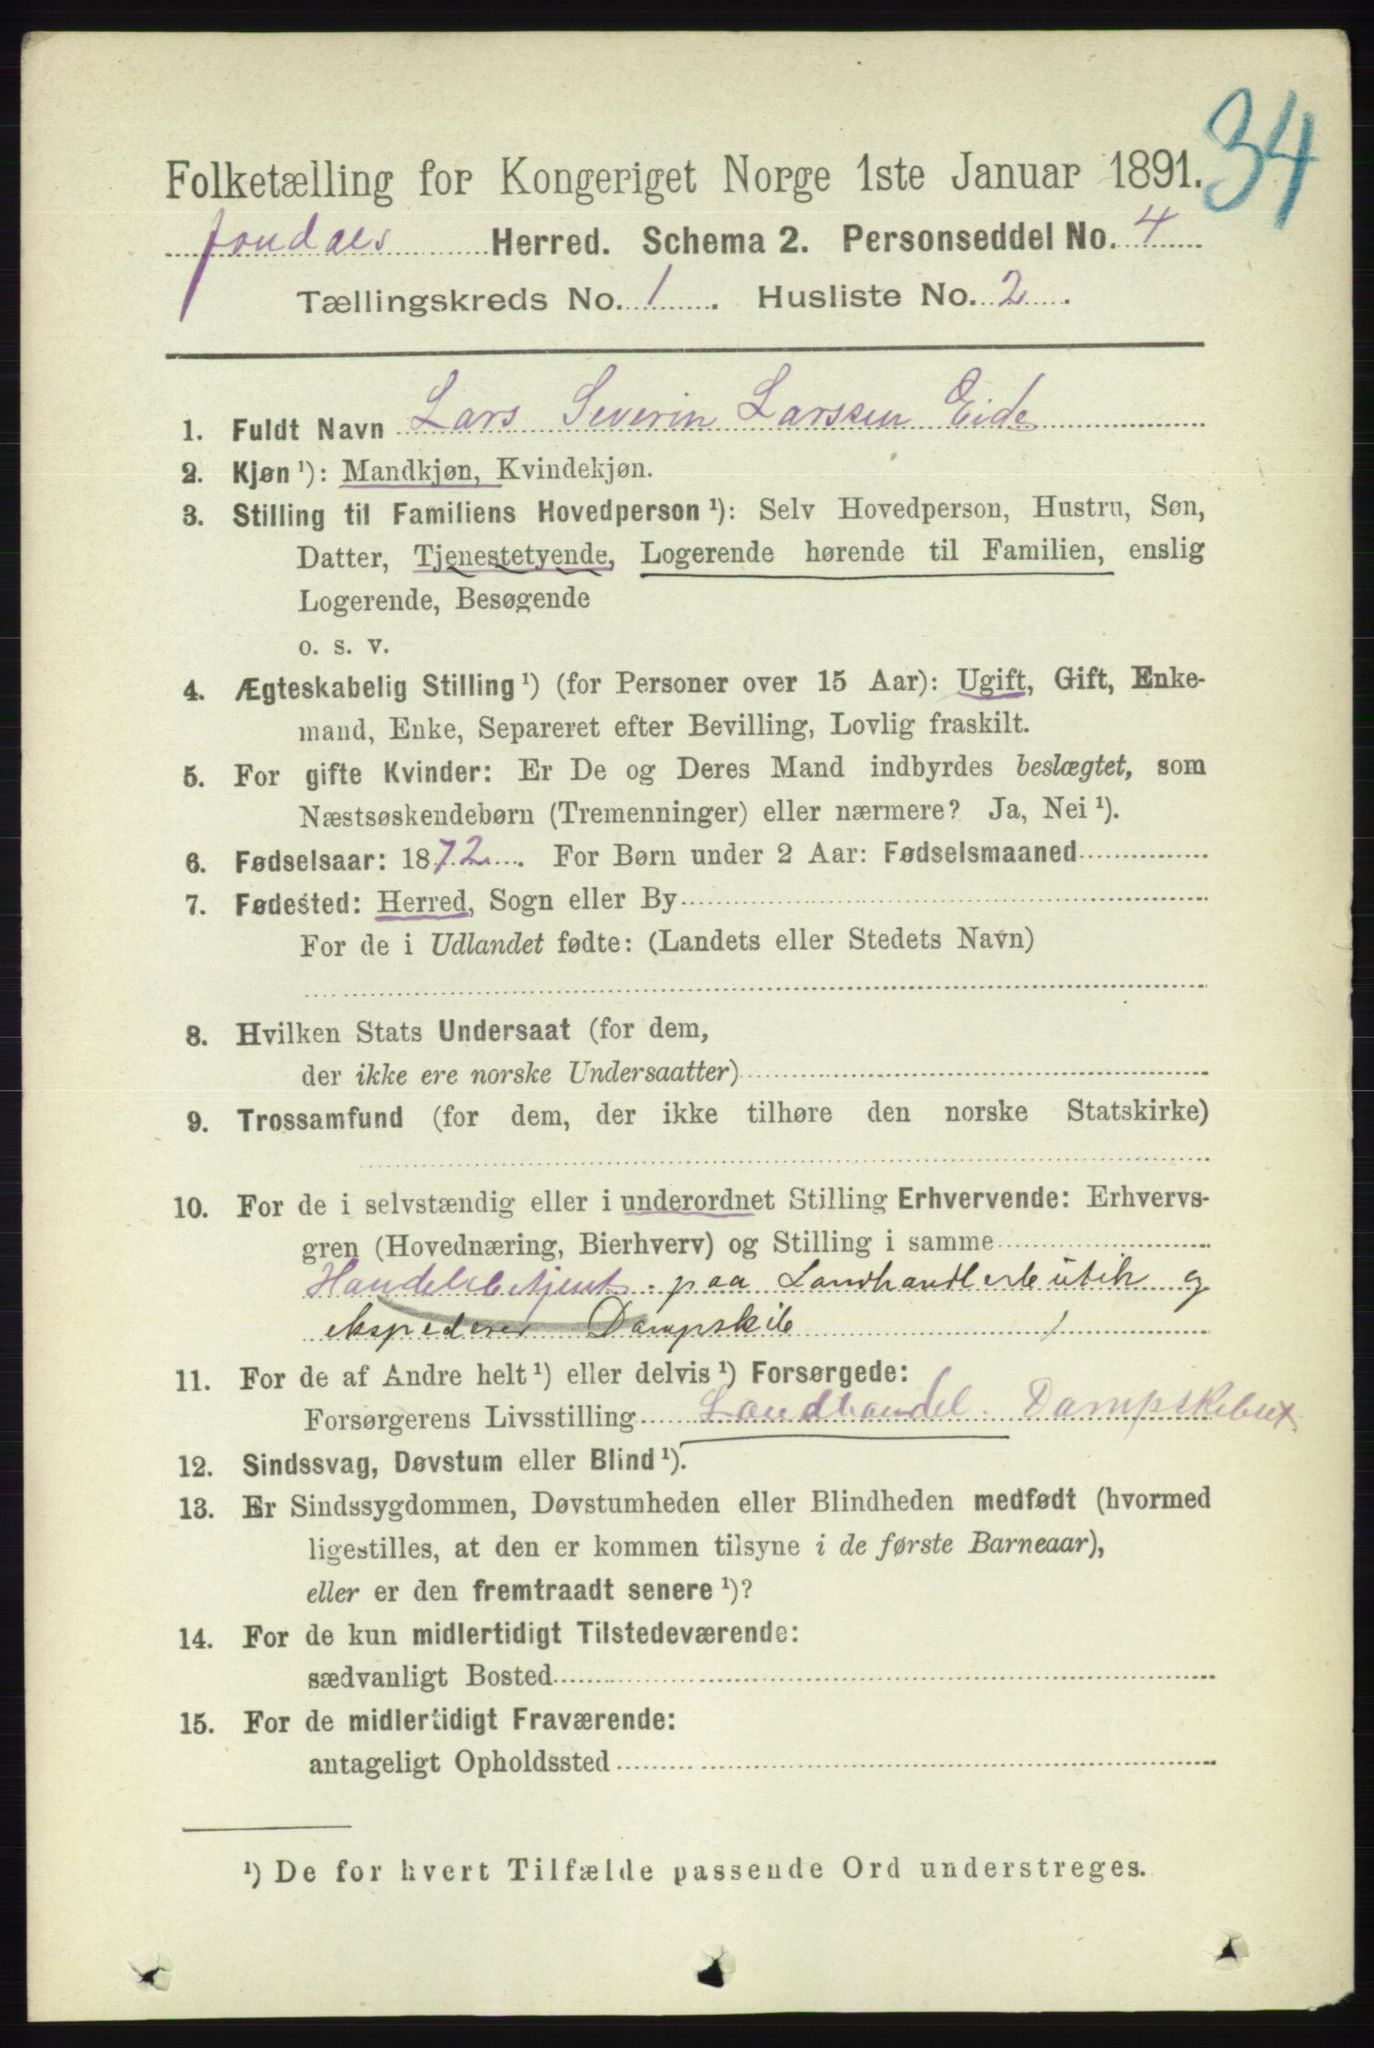 34
Folketælling for Kongeriget Norge 1ste Januar 1891.
Jondals Herred. Schema 2. Personseddel No. 4
Tællingskreds No. 1. Husliste No. 2.
1. Fuldt Navn Lars Severin Larssen Eide
2. Kjøn ¹): Mandkjøn, Kvindekjøn.
3. Stilling til Familiens Hovedperson ¹): Selv Hovedperson, Hustru, Søn,
Datter, Tjenestetyende, Logerende hørende til Familien, enslig
Logerende, Besøgende
o. s. v.
4. Ægteskabelig Stilling ¹) (for Personer over 15 Aar): Ugift, Gift, Enke-
mand, Enke, Separeret efter Bevilling, Lovlig fraskilt.
5. For gifte Kvinder: Er De og Deres Mand indbyrdes beslægtet, som
Næstsøskendebørn (Tremenninger) eller nærmere? Ja, Nei ¹).
6. Fødselsaar: 1872. For Børn under 2 Aar: Fødselsmaaned
7. Fødested: Herred, Sogn eller By
For de i Udlandet fødte: (Landets eller Stedets Navn)
8. Hvilken Stats Undersaat (for dem,
der ikke ere norske Undersaatter)
9. Trossamfund (for dem, der ikke tilhøre den norske Statskirke)
10. For de i selvstændig eller i underordnet Stilling Erhvervende: Erhvervs-
gren (Hovednæring, Bierhverv) og Stilling i samme
Handelsbetjent paa Landhandlerbutik og
ekspederer Dampskib
11. For de af Andre helt ¹) eller delvis ¹) Forsørgede:
Forsørgerens Livsstilling Landhandel. Dampskibsex
12. Sindssvag, Døvstum eller Blind ¹).
13. Er Sindssygdommen, Døvstumheden eller Blindheden medfødt (hvormed
ligestilles, at den er kommen tilsyne i de første Barneaar),
eller er den fremtraadt senere ¹)?
14. For de kun midlertidigt Tilstedeværende:
sædvanligt Bosted
15. For de midlertidigt Fraværende:
antageligt Opholdssted
¹) De for hvert Tilfælde passende Ord understreges.